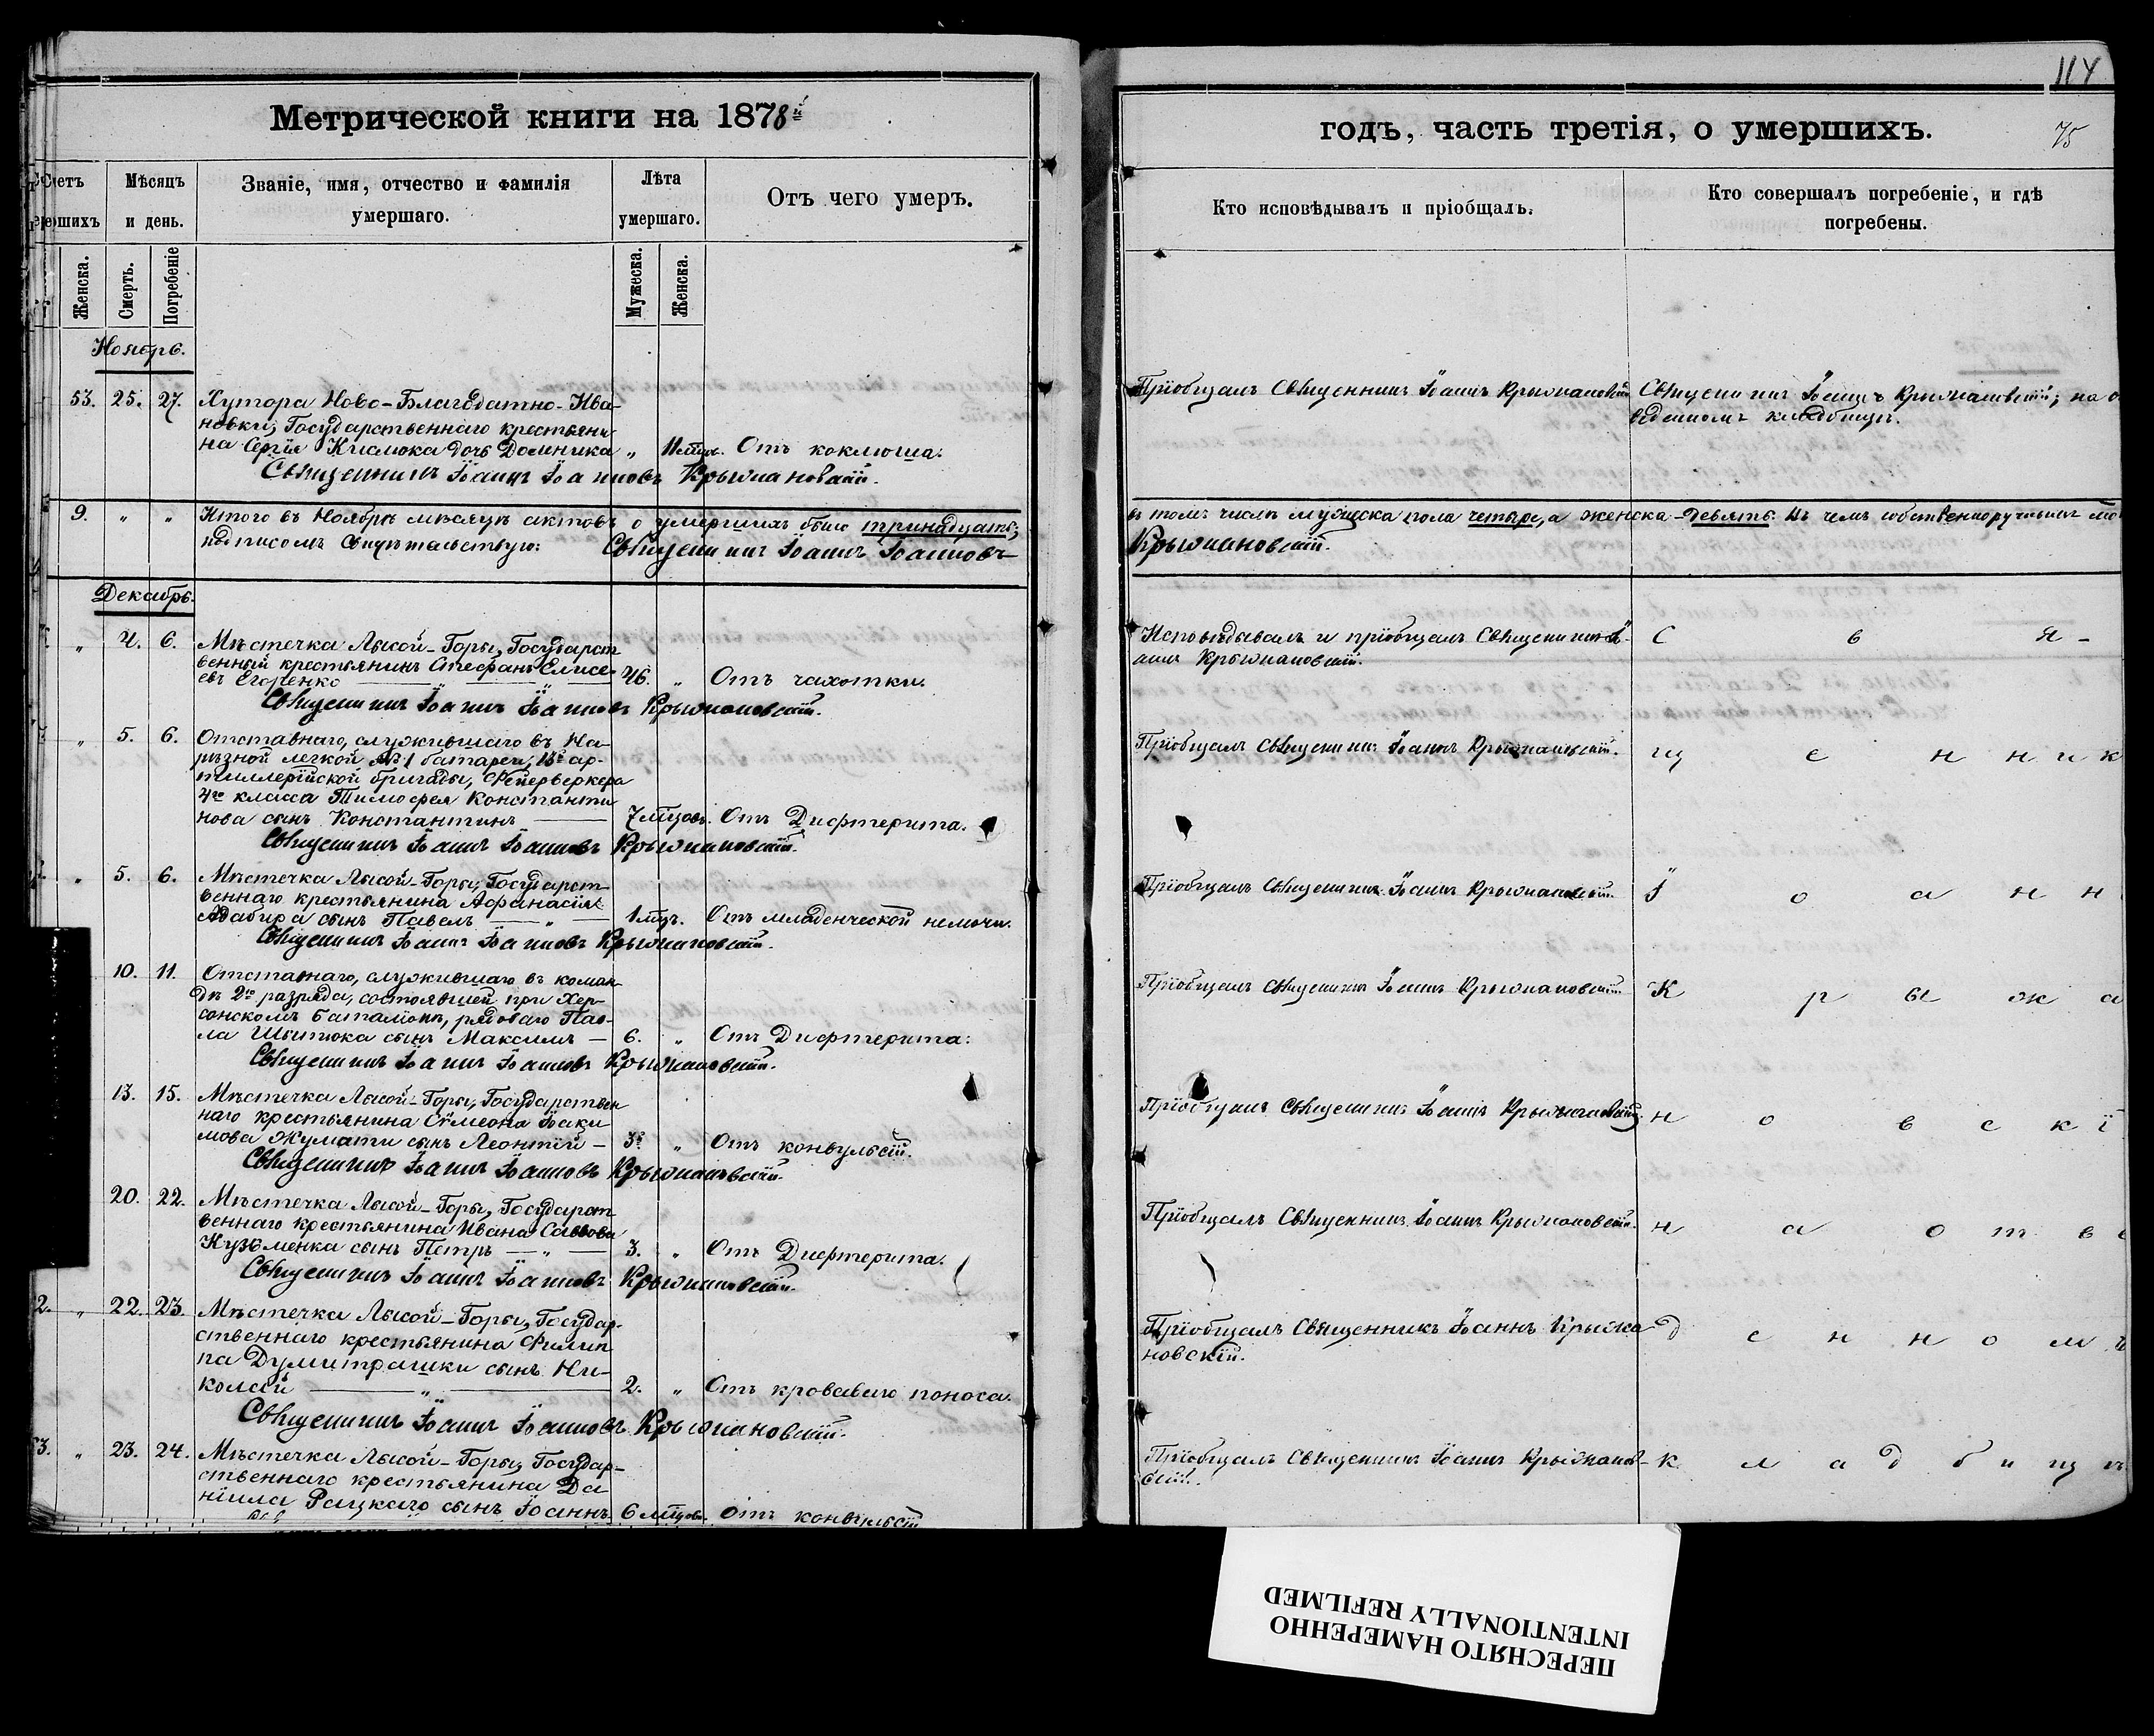 114
Метрической книги на 1878й
годъ, часть третія, о умершихъ.
75
Счетъ
умершихъ
Мѣсяцъ
и день.
Званіе, имя, отчество и фамилія
умершаго.
Лѣта
умершаго.
Отъ чего умеръ.
Кто исповѣдывалъ и пріобщалъ.
Кто совершалъ погребеніе, и гдѣ
погребены.
Женска.
Смерть.
Погребеніе
Мужеска.
Женска.
Ноябрь.
53. 25. 27. Хутора Ново-Благодатно-Ива-
новки, Государственнаго крестьяни-
на Сергія Кислюка дочь Домника „ 11 мцъ. Отъ коклюша.
Священникъ Іоаннъ Іоанновъ Крыжановскій.
Пріобщалъ Священникъ Іоаннъ Крыжановскій
Священникъ Іоаннъ Крыжановскій, на о
веденномъ кладбищѣ.
9. „ „ Итого въ Ноябрѣ мѣсяцѣ актовъ о умершихъ было тринадцать;
въ томъ числѣ мужеска пола четыре, а женска-девять. Въ чемъ собственноручнымъ
подписомъ свидѣтельствую: Священникъ Іоаннъ Іоанновъ
Крыжановскій.
Декабрь.
„ 4. 6. Мѣстечка Лысой-Горы, Государст
венный крестьянинъ Стефанъ Елисе-
евъ Егоренко — „ — „ — 46. „ Отъ чахотки.
Священникъ Іоаннъ Іоанновъ Крыжановскій.
Исповѣдывалъ и пріобщалъ Священникъ Іо-
аннъ Крыжановскій.
С в я-
„ 5. 6. Отставнаго, служившаго въ На-
рѣзной легкой №1 батареи, 15й ар-
тиллерійской бригады, Фейерверкера
4го класса Тимофея Константи
нова сынъ Константинъ — 7 мцовъ. Отъ Дифтерита.
Священникъ Іоаннъ Іоанновъ Крыжановскій.
Пріобщалъ Священникъ Іоаннъ Крыжановскій.
щ е н н и к
„ 5. 6. Мѣстечка Лысой-Горы, Государст-
веннаго крестьянина Афанасія
Адабира сынъ Павелъ — „ — 1 мцъ. Отъ младенческой немочи.
Священникъ Іоаннъ Іоанновъ Крыжановскій.
Пріобщалъ Священникъ Іоаннъ Крыжановскій.
І о а н н
10. 11. Отставнаго, служившаго въ коман-
дѣ 2го разряда, состоявшей при Хер-
сонскомъ баталіонѣ, рядоваго Пав-
ла Шьитюка сынъ Максимъ — 6. „ Отъ Дифтерита.
Священникъ Іоаннъ Іоанновъ Крыжановскій.
Пріобщалъ Священникъ Іоаннъ Крыжановскій
К р ы ж а
13. 15. Мѣстечка Лысой-Горы, Государствен
наго крестьянина Сѵмеона Іоаки
мова Жумати сынъ Леонтій — 3. „ Отъ конвульсій.
Священникъ Іоаннъ Іоанновъ Крыжановскій.
Пріобщалъ Священникъ Іоаннъ Крыжановскій.
н о в с к і
20. 22. Мѣстечка Лысой-Горы, Государст
веннаго крестьянина Ивана Саввова
Кузьменка сынъ Петръ — „ — 3. „ Отъ Дифтерита.
Священникъ Іоаннъ Іоанновъ Крыжановскій.
Пріобщалъ Священникъ Іоаннъ Крыжановскій.
н а о т в е
2. „ 22. 23. Мѣстечка Лысой-Горы, Государ-
ственнаго крестьянина Филип
па Думитрашки сынъ Ни-
колай — „ — 2. „ Отъ кроваваго поноса.
Священникъ Іоаннъ Іоанновъ Крыжановскій.
Пріобщалъ Священникъ Іоаннъ Крыжа
новскій.
д е н н о м ъ
3. „ 23. 24. Мѣстечка Лысой-Горы, Государ-
ственнаго крестьянина Да
ніила Рацкаго сынъ Іоаннъ. 6 мцовъ. Отъ конвульсій
Пріобщалъ Священникъ Іоаннъ Крыжанов-
скій.
к л а д б и щ ѣ
ПЕРЕСНЯТО НАМЕРЕННО
INTENTIONALLY REFILMED